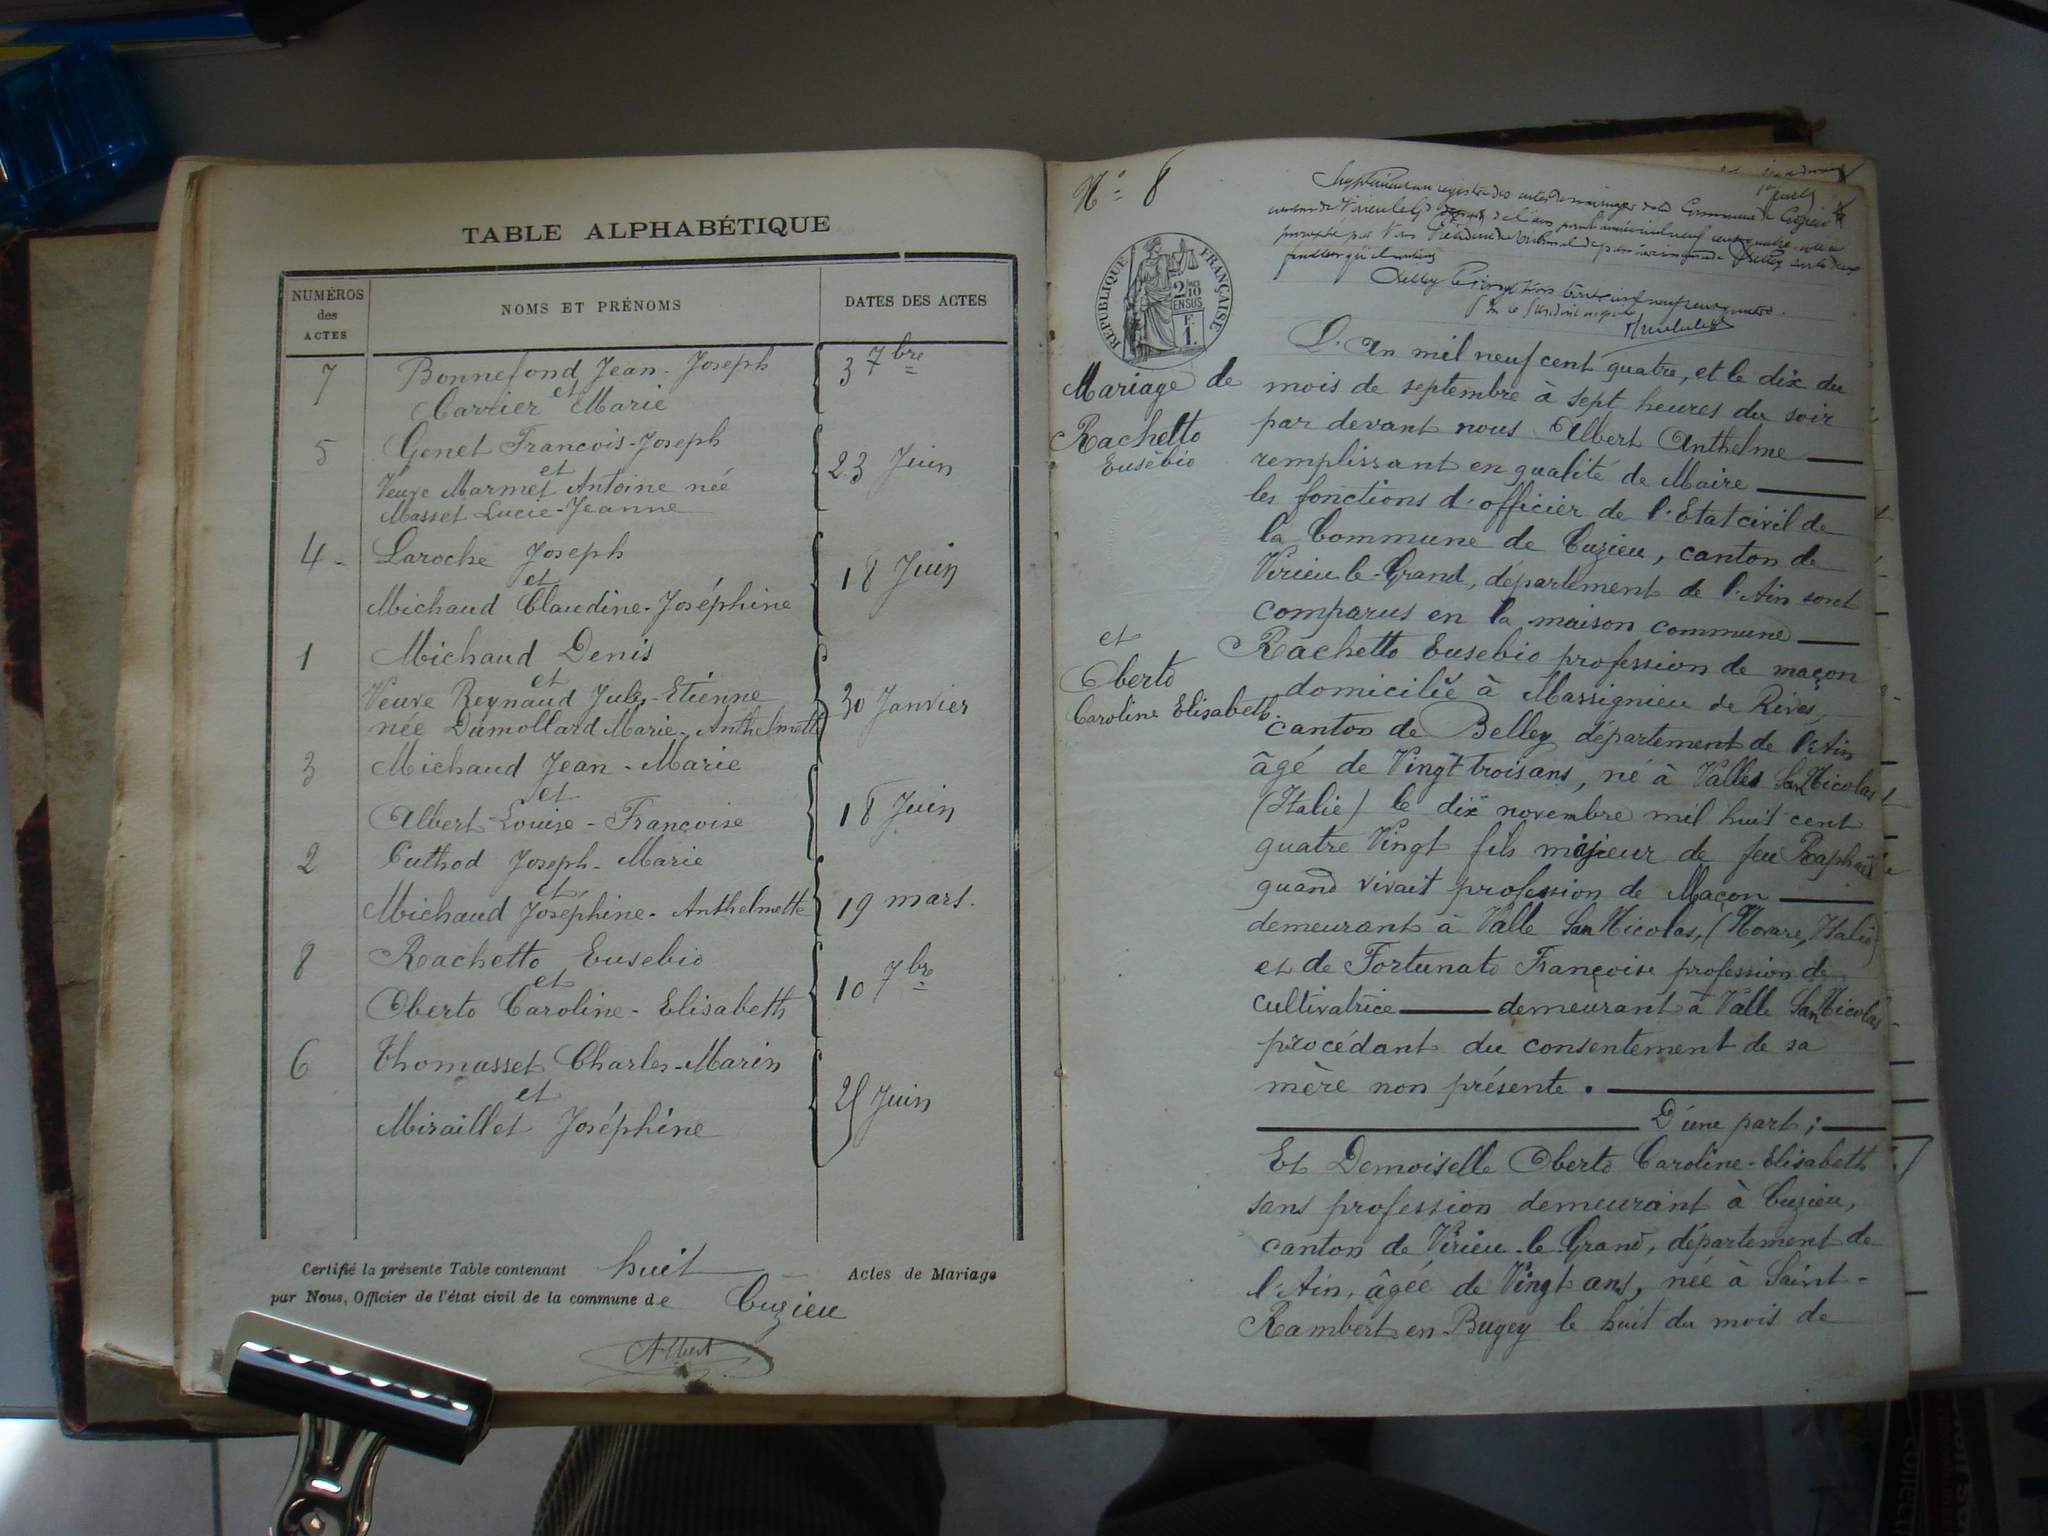 TABLE ALPHABÉTIQUE
NUMÉROS des ACTES
NOMS ET PRÉNOMS
DATES DES ACTES
7 Bonnefond Jean-Joseph
et
Carrier Marie
3 7bre
5 Genet François-Joseph
et
Veuve Marmet Antoine née
Masset Lucie-Jeanne
23 Juin
4 Laroche Joseph
et
Michaud Claudine-Joséphine
18 Juin
1 Michaud Denis
et
Veuve Reynaud Jules-Etienne
née Dumollard Marie-Anthelmette
30 Janvier
3 Michaud Jean-Marie
et
Albert Louise-Françoise
18 Juin
2 Cuthod Joseph-Marie
et
Michaud Joséphine-Anthelmette
19 mars.
8 Rachetto Eusebio
et
Oberto Caroline-Elisabeth
10 7bre
6 Thomasset Charles-Marin
et
Miraillet Joséphine
25 Juin
Certifié la présente Table contenant huit Actes de Mariage
par Nous, Officier de l'état civil de la commune de Cuzieu
Albert
N° 8
RÉPUBLIQUE FRANÇAISE
Mariage de
Rachetto
Eusébio
et
Oberto
Caroline Elisabeth.
L'An mil neuf cent quatre, et le dix du
mois de septembre à sept heures du soir
par devant nous Albert Anthelme
remplissant en qualité de Maire
les fonctions d'officier de l'Etat civil de
la Commune de Cuzieu, canton de
Virieu-le-Grand, département de l'Ain sont
comparus en la maison commune
Rachetto Eusebio profession de maçon
domicilié à Massignieu de Rives,
canton de Belley département de l'Ain
âgé de Vingt trois ans, né à Valles San Nicolas
(Italie) le dix novembre mil huit cent
quatre Vingt fils majeur de feu Raphaël
quand vivait profession de Maçon
demeurant à Valle San Nicolas, (Novare, Italie)
et de Fortunato Françoise profession de
cultivatrice demeurant à Valle San Nicolas
procédant du consentement de sa
mère non présente.
D'une part;
Et Demoiselle Oberto Caroline-Elisabeth
sans profession demeurant à Cuzieu,
canton de Virieu-le-Grand, département de
l'Ain, âgée de Vingt ans, née à Saint-
Rambert-en-Bugey le huit du mois de